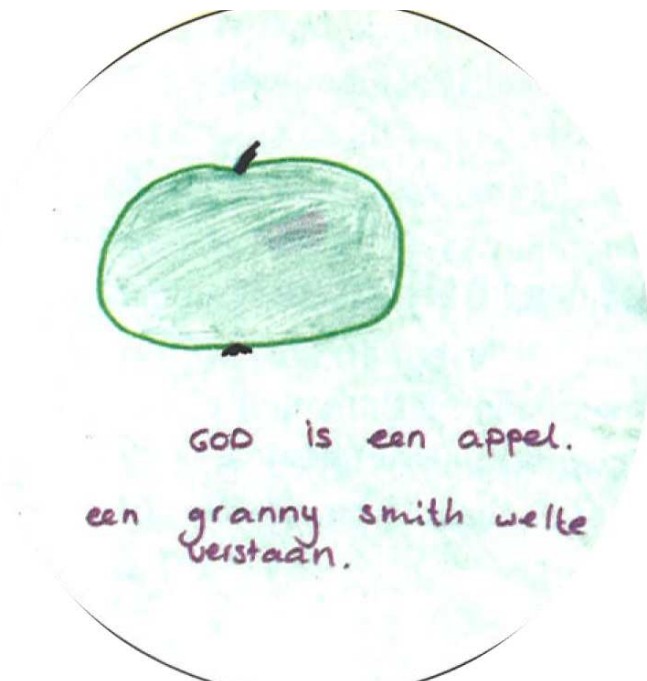 GOD is een appel.
een granny smith welte
verstaan.